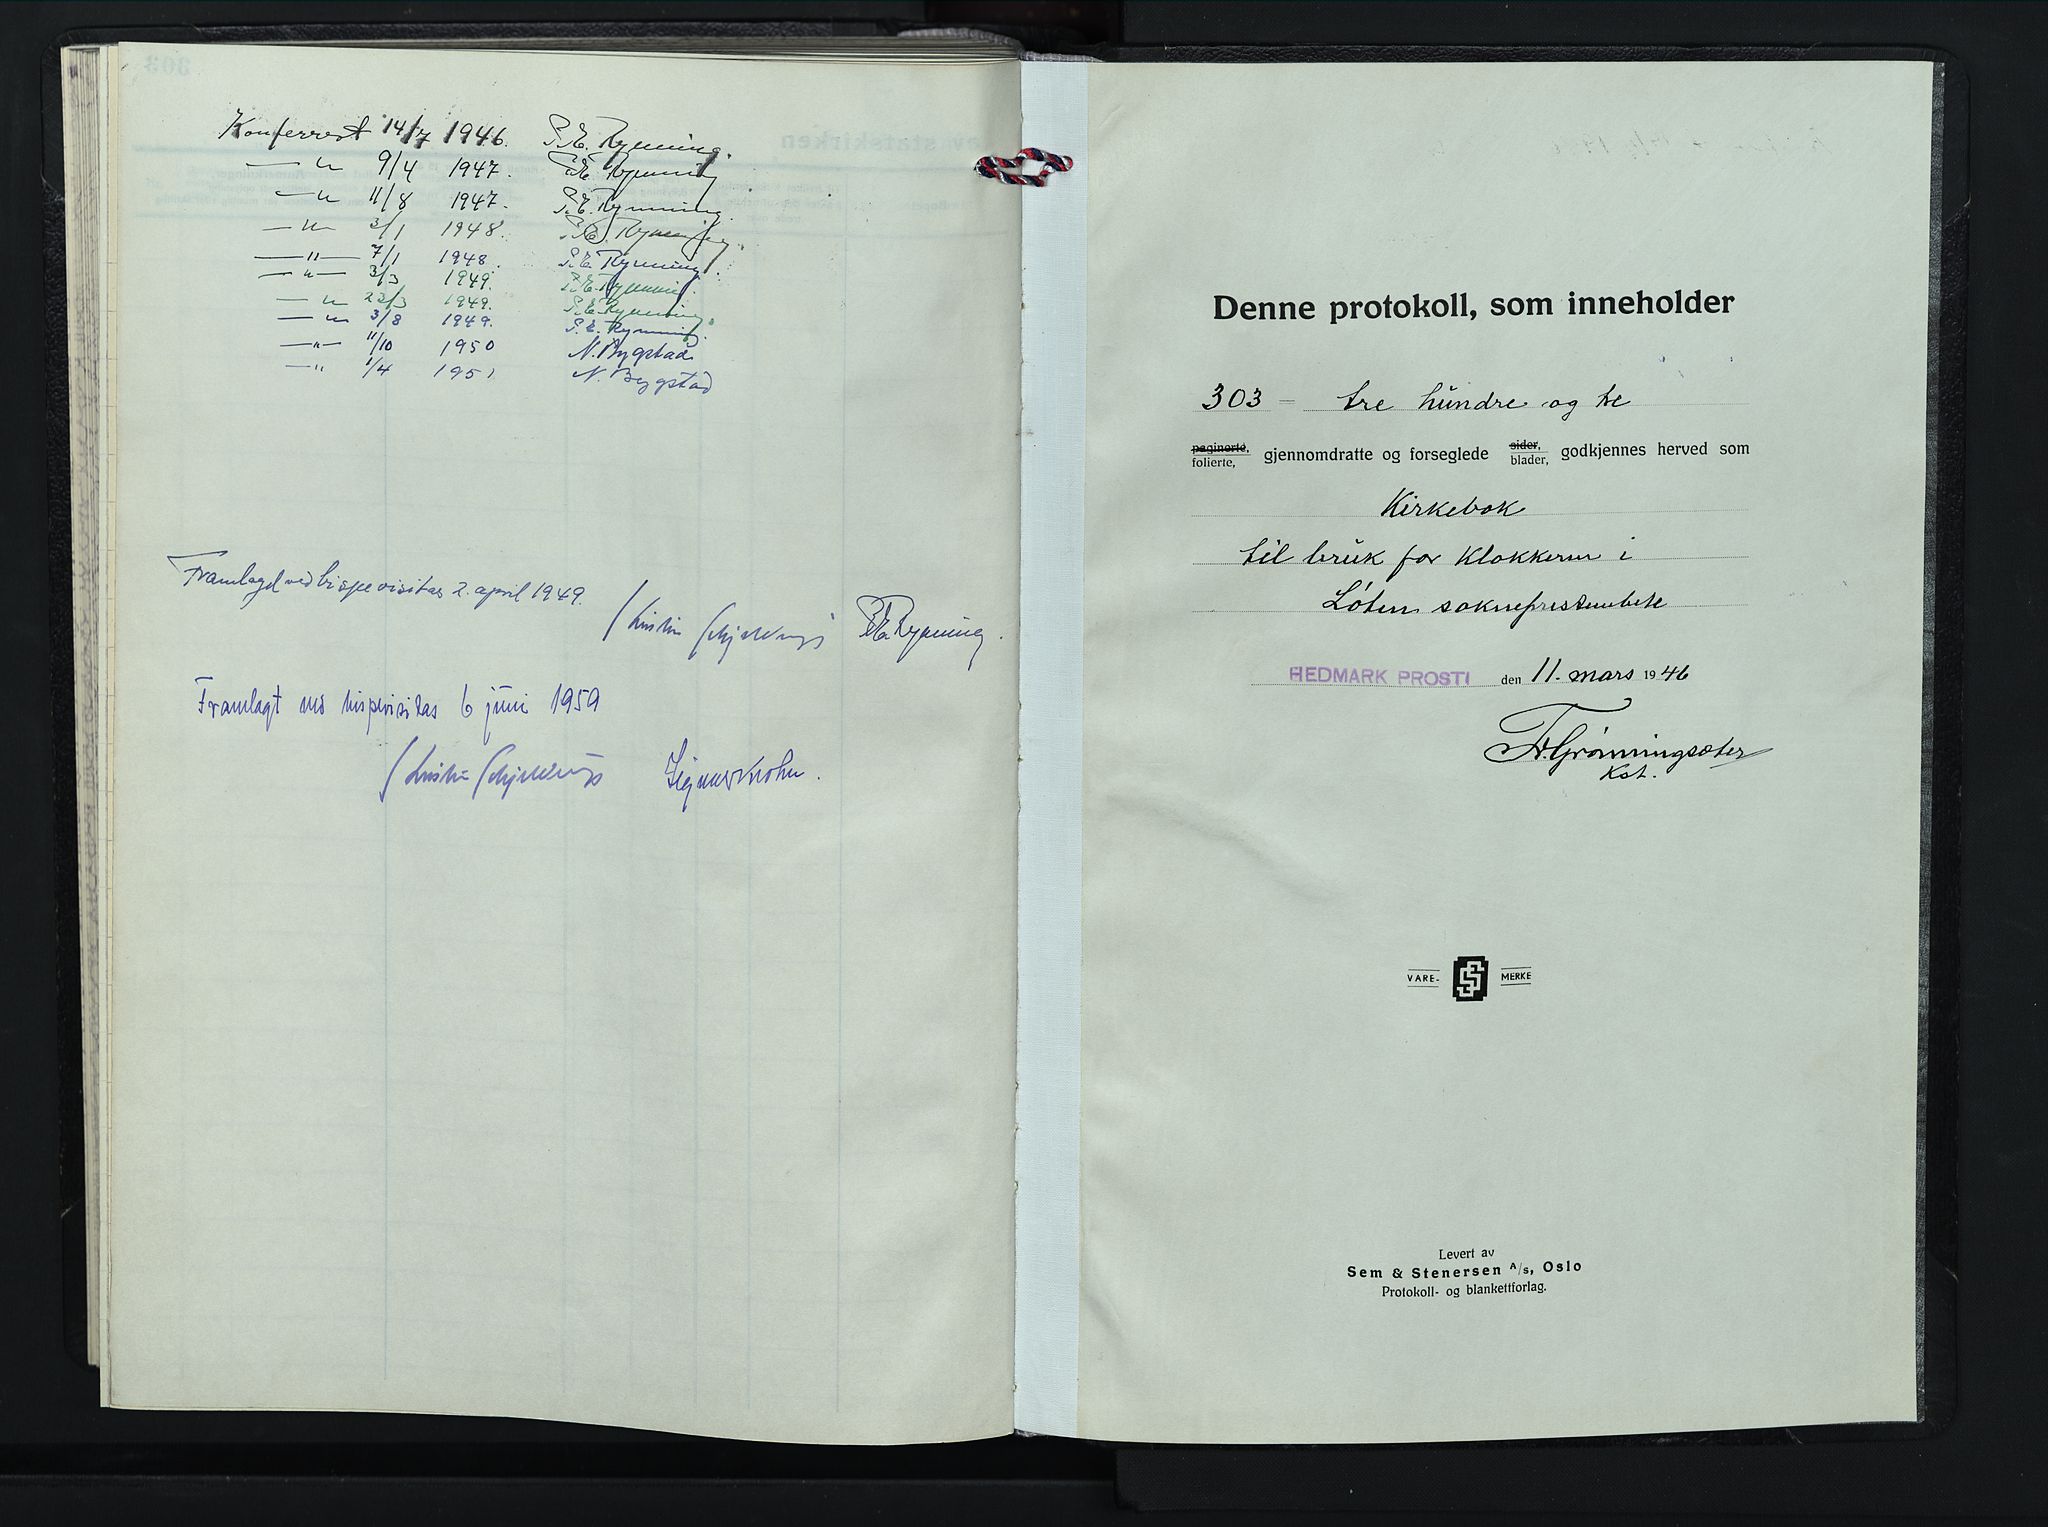 Konferrert 14/7 1946. P.E. Rynning.
— " — 9/4 1947. P.E. Rynning
— " 11/8 1947. P.E. Rynning.
— " — 3/1 1948. P.E. Rynning
— " — 7/1 1948. P.E. Rynning.
— " — 3/3 1949. P.E. Rynning.
— " 22/3 1949. P.E. Rynning.
— " — 3/8 1949. P.E. Rynning.
— " — 11/10 1950 N. Bygstad
— " 1/4 1951 N. Bygstad
Framlagd ved bispevisitas 2. april 1949.
Kristian Schjelderup P.E. Rynning.
Framlagt ved bispevisitas 6 juni 1959
Kristian Schjelderup Krohn.
Denne protokoll, som inneholder
303 – tre hundre og tre
paginerte, folierte, gjennomdratte og forseglede sider, blader, godkjennes herved som
Kirkebok
til bruk for klokkeren i
Løten sokneprestembete
HEDMARK PROSTI den 11. mars 1946
Fr. Grønningsæter
kst.
VARE- MERKE
Levert av
Sem & Stenersen A/s, Oslo
Protokoll- og blankettforlag.